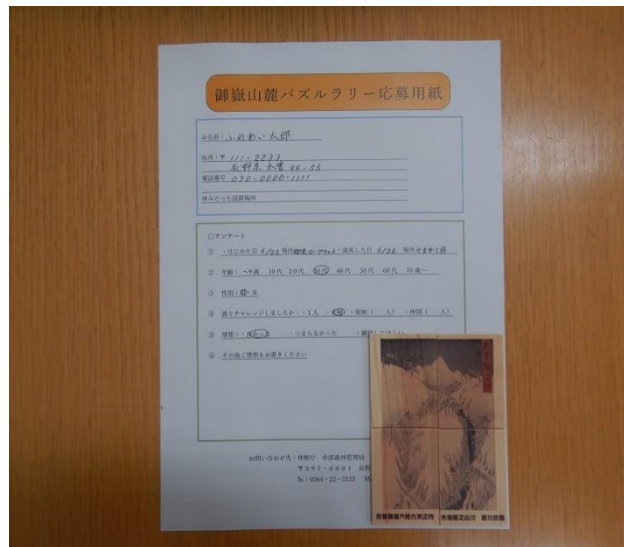 御嶽山麓パズルラリー応募用紙
お名前：ふれあい太郎
住所：〒 111-2233
長野県木曽 44-55
電話番号 090-0000-1111
休みだった設置場所
○アンケート
① ・はじめた日 6/25 場所 ・達成した日 6/26 場所
② 年齢： ～9歳 10代 20代 30代 40代 50代 60代 70歳～
③ 性別：男・女
④ 誰とチャレンジしましたか：・1人 ・ ・家族（ 人） ・仲間（ 人）
⑤ 感想：・楽しかった ・つまらなかった
⑥ その他ご感想をお書きください
お問い合わせ先：林野庁 中部森林管理局
〒397-0001 長野
℡：0264-22-2122